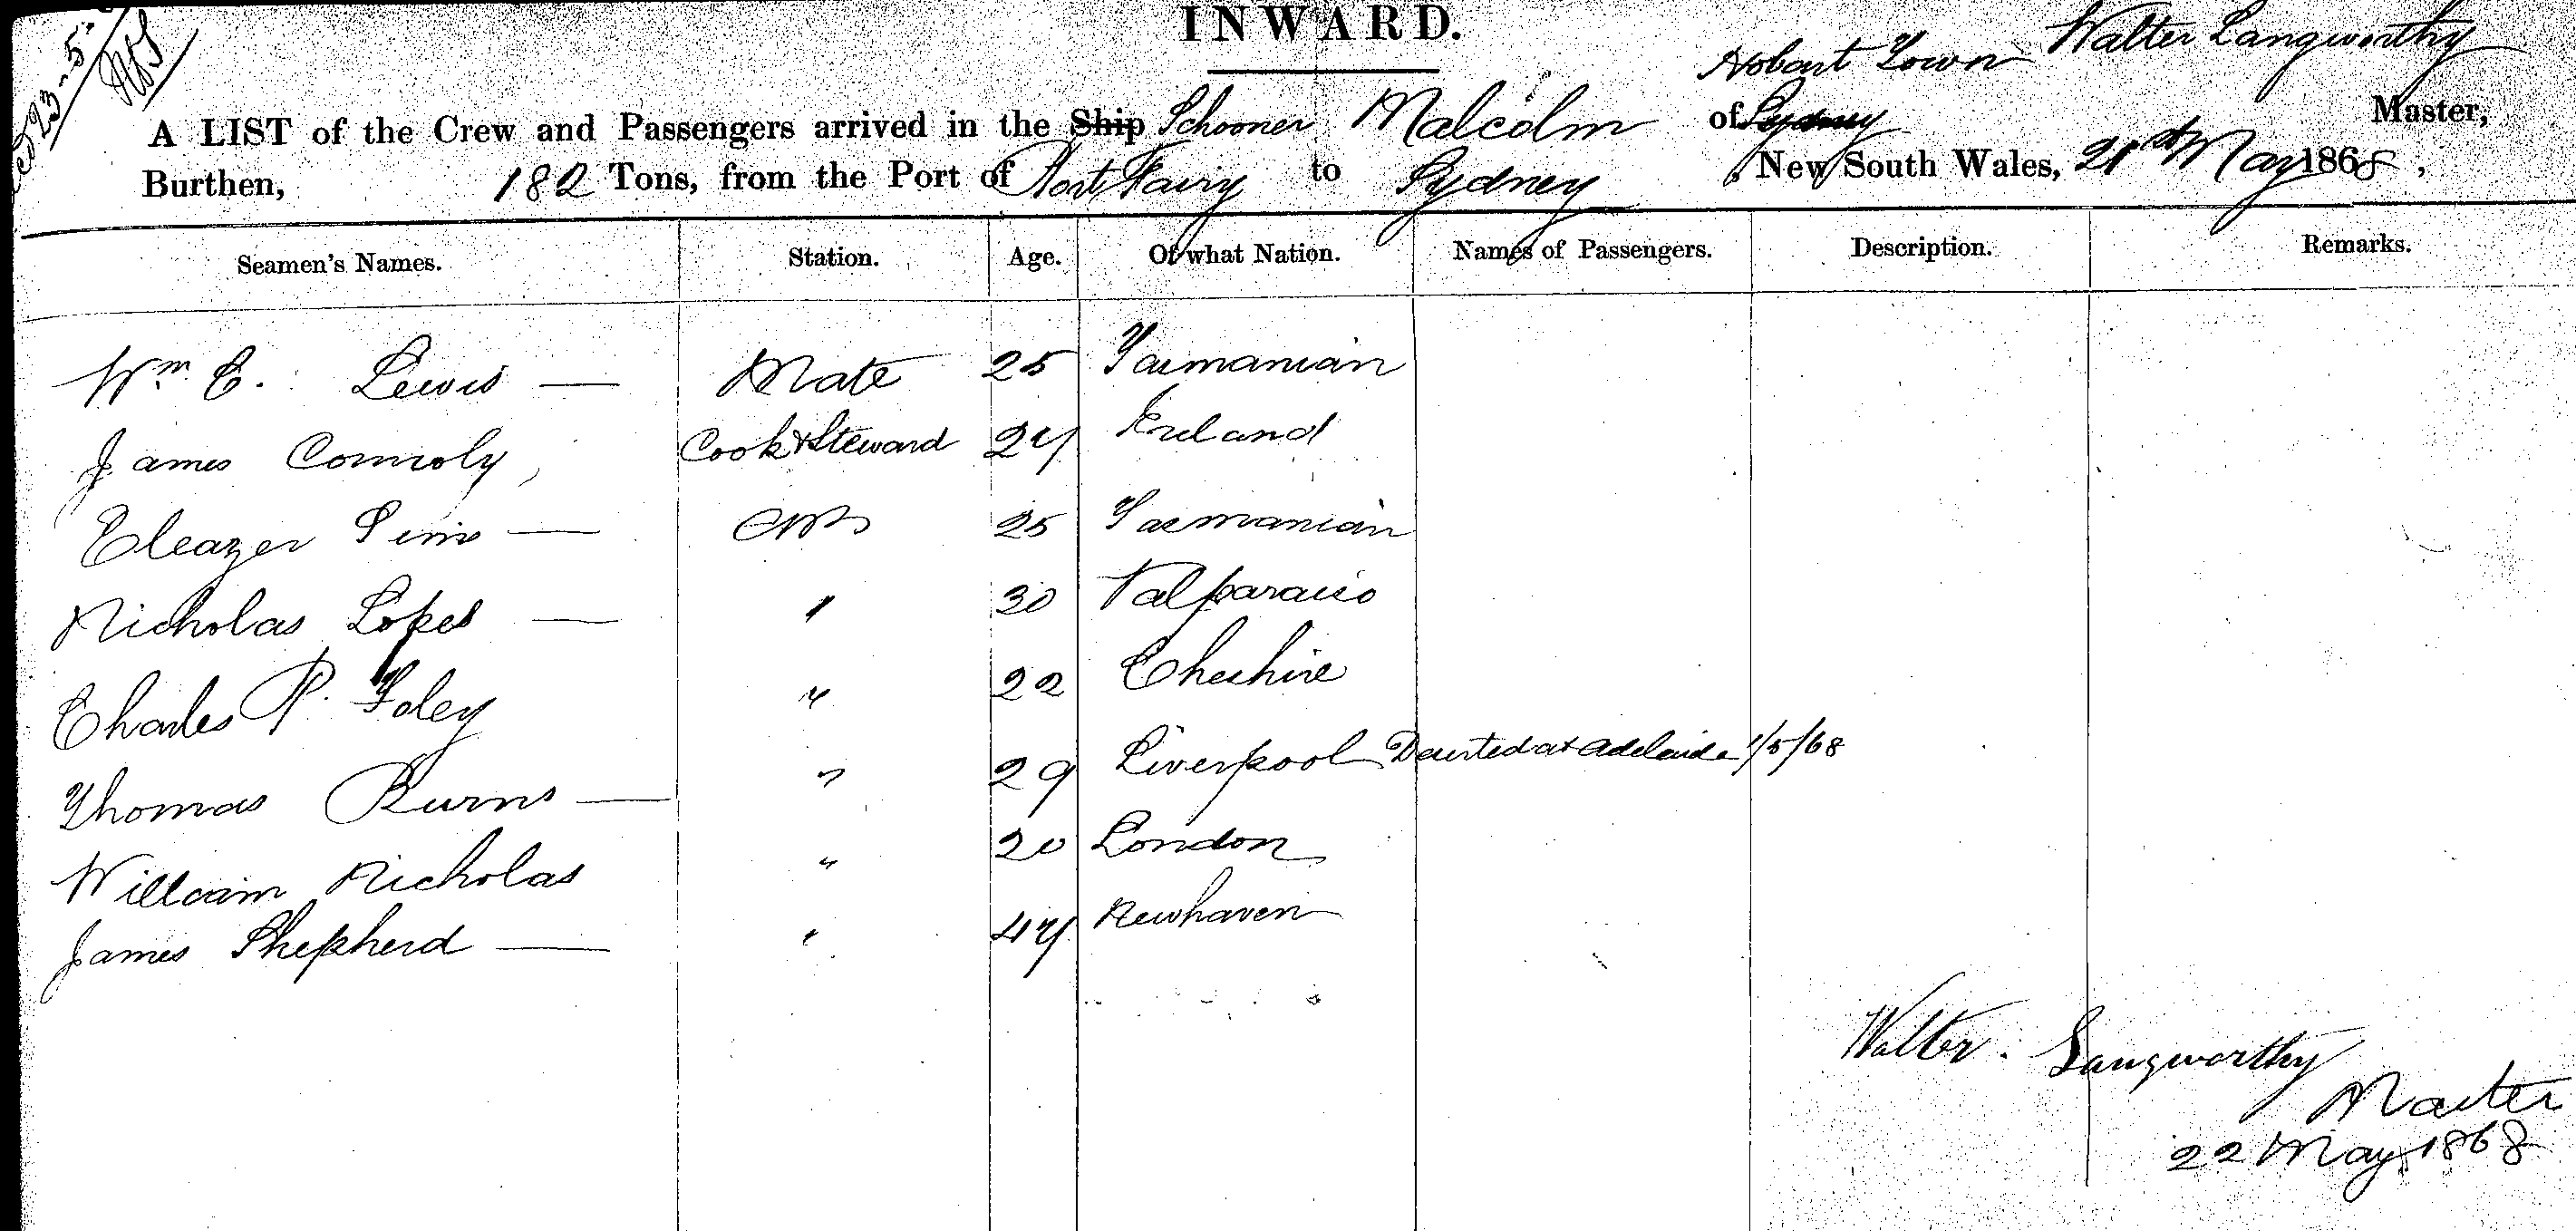 INWARD.
Hobart Town Walter Langworthy
A LIST of the Crew and Passengers arrived in the Ship Schooner Malcolm of Sydney Master,
Burthen, 182 Tons, from the Port of Port Fairy to Sydney , New South Wales, 21st May 1868,
Seamen's Names. Station. Age. Of what Nation. Names of Passengers. Description. Remarks.
Wm E. Lewis — Mate 25 Tasmanian
James Connoly, Cook & Steward 24 Ireland
Eleazer Sims — AB 25 Tasmanian
Nicholas Lopes — " 30 Valparaiso
Charles P. Foley " 22 Cheshire
Thomas Burns — " 29 Liverpool Deserted at Adelaide 1/5/68
William Nicholas " 20 London
James Shepherd — " 44 Newhaven
Walter Langworthy
Master
22 May 1868